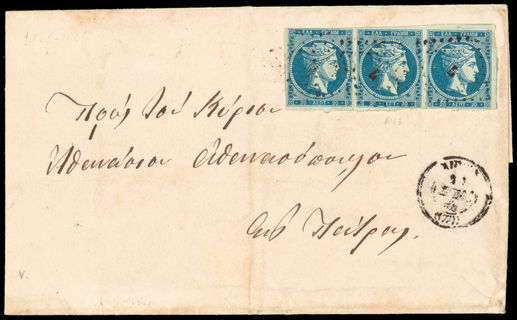 ΕΛΛ. ΓΡΑΜΜ. ΕΛΛ. ΓΡΑΜΜ. ΕΛΛ. ΓΡΑΜΜ.
20 ΛΕΠΤ. 20 20 ΛΕΠΤ. 20 20 ΛΕΠΤ. 20
Πρὸς τὸν Κύριον
Ἀθανάσιον Ἀθανασόπουλον
Εἰς Πάτρας.